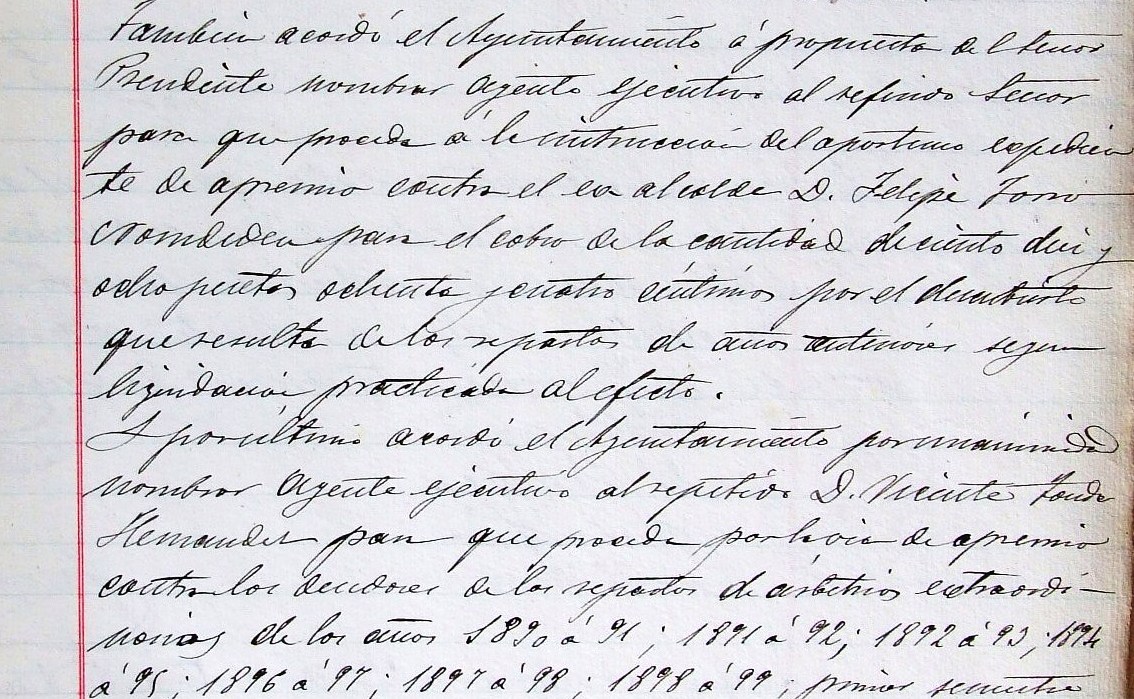 Tambien acordó el Ayuntamiento á propuesta del Señor
Presidente nombrar agente ejecutivo al referido Señor
para que proceda á la instruccion del oportuno expedien
te de apremio contra el ex alcalde D. Felipe
para el cobro de la cantidad de ciento diez y
ocho pesetas ochenta y cuatro céntimos por el descubierto
que resulta de los repartos de años anteriores segun
liquidacion practicada al efecto.
Y por último acordó el Ayuntamiento por unanimidad
nombrar Agente ejecutivo al repetido D. Vicente
Hernandez para que proceda por la via de apremio
contra los deudores de los repartos de arbitrios extraordi-
narios de los años 1890 á 91; 1891 á 92; 1892 á 93; 1894
á 95; 1896 á 97; 1897 á 98; 1898 á 99; primer semestre